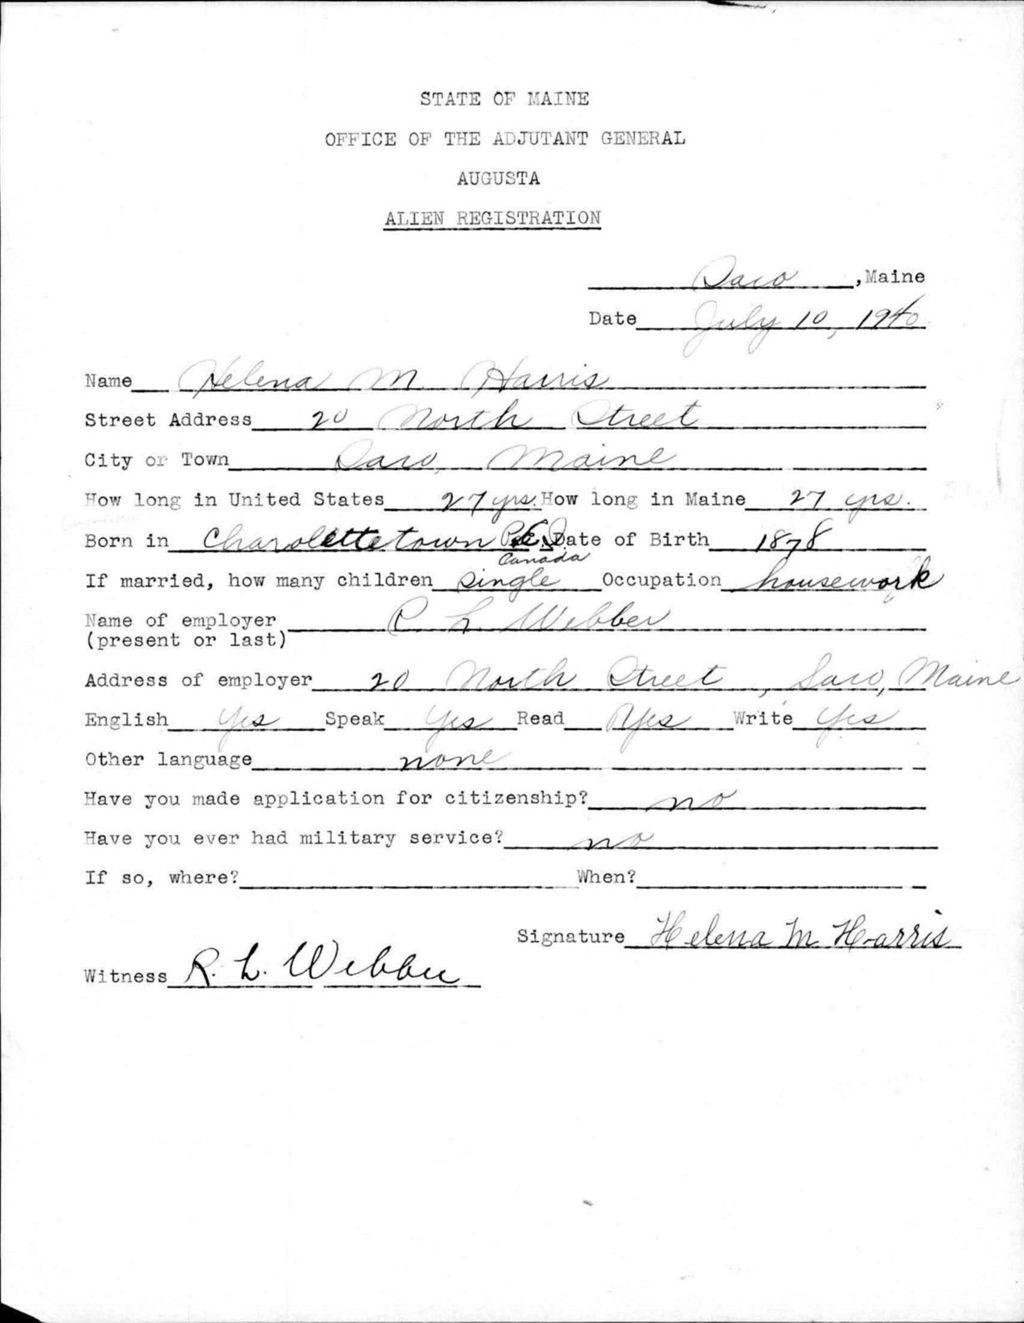 STATE OF MAINE
OFFICE OF THE ADJUTANT GENERAL
AUGUSTA
ALIEN REGISTRATION
Saco, Maine
Date July 10, 1940
Name Helena M Harris
Street Address 20 North Street
City or Town Saco, Maine
How long in United States 27 yrs. How long in Maine 27 yrs.
Born in Charolettetown P.E.I. Date of Birth 1878
Canada
If married, how many children Single Occupation housework
Name of employer L Webber
(present or last)
Address of employer 20 North Street, Saco, Maine
English Yes Speak Yes Read Yes Write Yes
Other language none
Have you made application for citizenship? no
Have you ever had military service? no
If so, where? When?
Signature Helena M Harris
Witness R. L. Webber